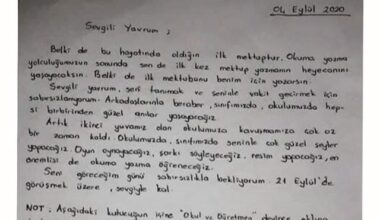 04 Eylül 2020
Sevgili Yavrum ;
Belki de bu hayatında aldığın ilk mektuptur. Okuma yazma
yolculuğumuzun sonunda sen de ilk kez mektup yazmanın heyecanını
yaşayacaksın. Belki de ilk mektubunu benim için yazarsın.
Sevgili yavrum, seni tanımak ve seninle vakit geçirmek için
sabırsızlanıyorum. Arkadaşlarınla beraber, sınıfımızda, okulumuzda hep-
si birbirinden güzel anılar yaşayacağız.
Artık ikinci yuvamız olan okulumuza kavuşmamıza çok az
bir zaman kaldı. Okulumuzda, sınıfımızda seninle çok güzel şeyler
yapacağız. Oyun oynayacağız, şarkı söyleyeceğiz, resim yapacağız, en
önemlisi de okuma yazma öğreneceğiz.
Seni göreceğim günü sabırsızlıkla bekliyorum. 21 Eylül'de
görüşmek üzere, sevgiyle kal.
NOT : Aşağıdaki kutucuğun içine "Okul ve Öğretmen"